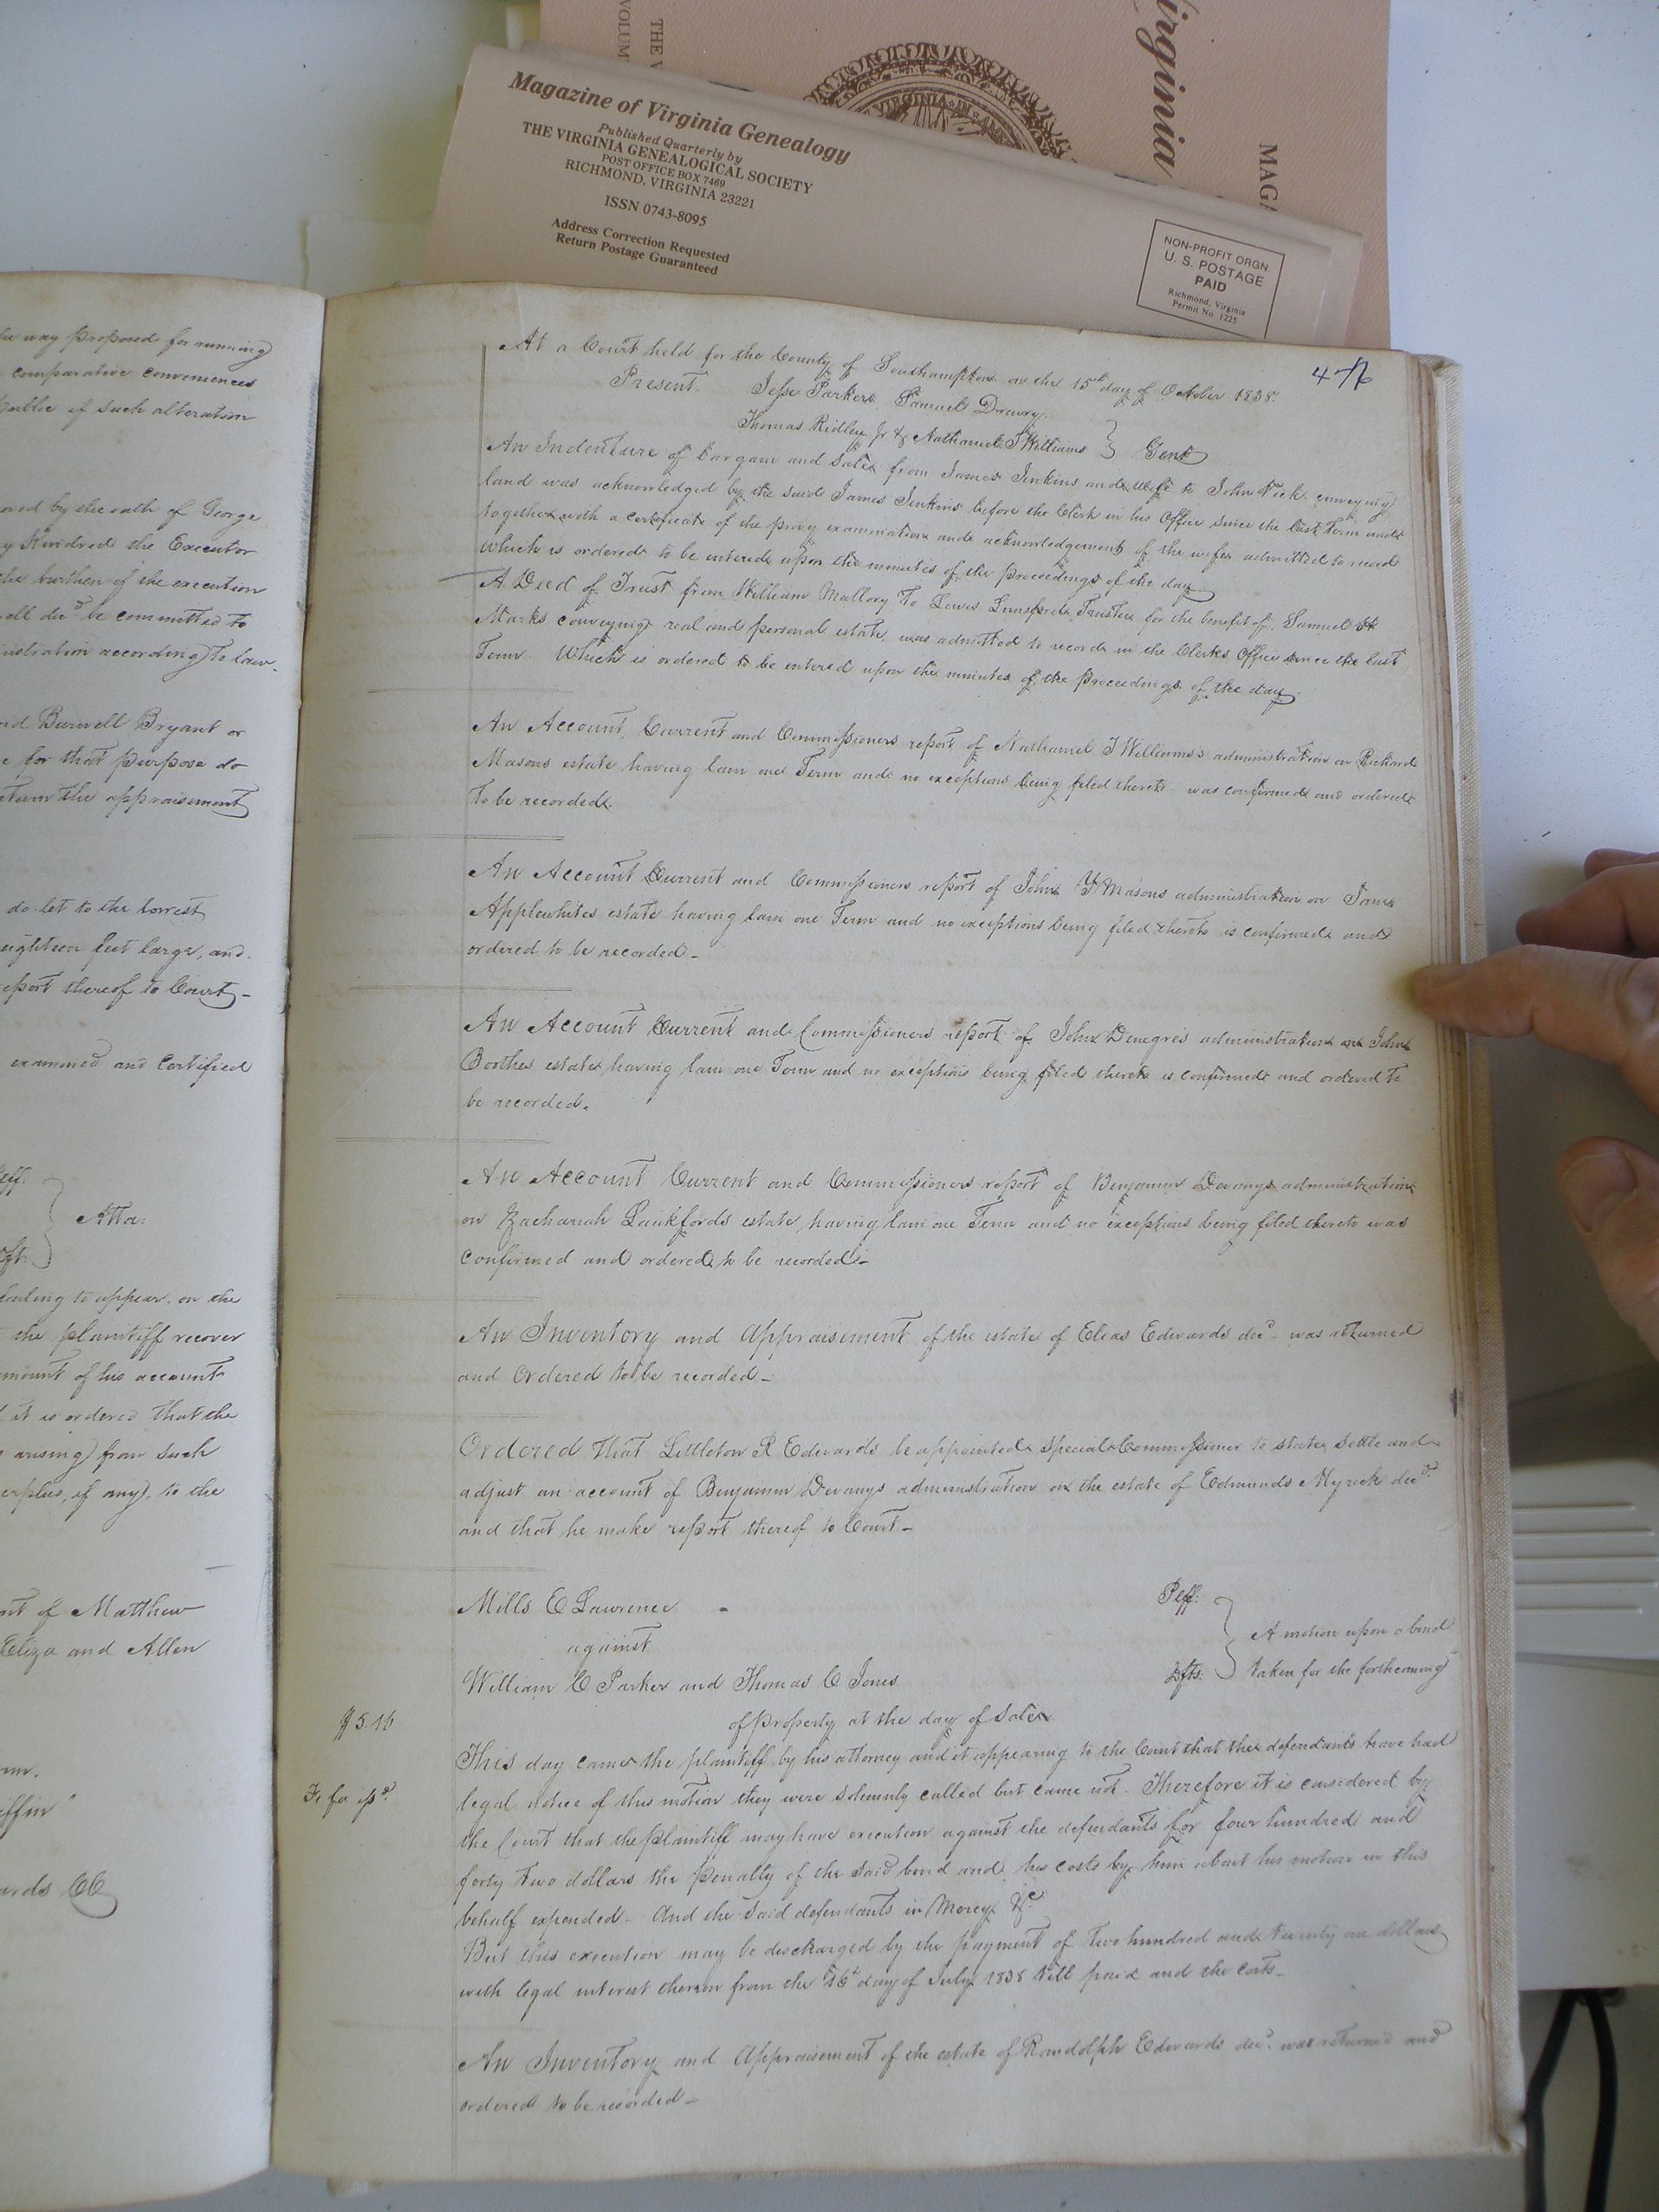 THE V
VOLUM
Virginia
MAGA
VIRGINIA IN
Magazine of Virginia Genealogy
Published Quarterly by
THE VIRGINIA GENEALOGICAL SOCIETY
POST OFFICE BOX 7469
RICHMOND, VIRGINIA 23221
ISSN 0743-8095
Address Correction Requested
Return Postage Guaranteed
NON-PROFIT ORGN.
U. S. POSTAGE
PAID
Richmond, Virginia
Permit No. 1225
way proposed for running
comparative conveniences
Public of such alteration
by the oath of George
Kindred the Executor
the burthen of the execution
decd be committed to
according to law.
Burwell Bryant or
for that purpose do
return the appraisement
do let to the lowest
eighteen feet large, and
report thereof to Court -
examined and certified
Atta:
failing to appear on the
the plaintiff recover
amount of his account
it is ordered that the
arising) from such
surplus, if any), to the
of Matthew
Eliza and Allen
476
At a Court held for the County of Southampton on the 15th day of October 1838.
Present Jesse Parker, Samuel Drewry,
Thomas Ridley Jr & Nathaniel T Williams } Gent
An Indenture of bargain and sale from James Jenkins and wife to John Vick conveying
land was acknowledged by the said James Jenkins before the Clerk in his Office since the last Term and
together with a certificate of the privy examination and acknowledgement of the wife admitted to record
which is ordered to be entered upon the minutes of the proceedings of the day
A Deed of Trust from William Mallory to Lewis Lunsford Trustee for the benefit of Samuel
Marks conveying real and personal estate, was admitted to record in the Clerks Office since the last
Term. Which is ordered to be entered upon the minutes of the proceedings of the day.
An Account Current and Commissioners report of Nathaniel T Williams's administration on Richard
Masons estate having lain one Term and no exceptions being filed thereto was confirmed and ordered
to be recorded.
An Account Current and Commissioners report of John Y Masons administration on James
Applewhites estate having lain one Term and no exceptions being filed thereto is confirmed and
ordered to be recorded -
An Account Current and Commissioners report of John administration on John
estate having lain one Term and no exceptions being filed thereto is confirmed and ordered to
be recorded.
An Account Current and Commissioners report of Benjamin Devanys administration
on Zachariah Lankfords estate, having lain one Term and no exceptions being filed thereto was
confirmed and ordered to be recorded -
An Inventory and Appraisement of the estate of Elias Edwards decd was returned
and Ordered to be recorded -
Ordered that Littleton R Edwards be appointed Special Commissioner to state, settle and
adjust an account of Benjamin Devanys administration on the estate of Edmunds Myrick decd
and that he make report thereof to Court -
Mills E Lawrence - Peff:
against } A motion upon a bond
William C Parker and Thomas C Jones Dfts. taken for the forthcoming
$5.16 of property at the day of sale
This day came the plaintiff by his attorney and it appearing to the Court that the defendants have had
Fi fa
legal notice of this motion they were solemnly called but came not. Therefore it is considered by
the Court that the plaintiff may have execution against the defendants for four hundred and
forty two dollars the penalty of the said bond and his costs by him about his motion in this
behalf expended - And the said defendants in Mercy &c
But this execution may be discharged by the payment of Two hundred and twenty one dollars
with legal interest thereon from the 16th day of July 1838 till paid and the costs -
An Inventory and Appraisement of the estate of Randolph Edwards decd was returned and
ordered to be recorded -